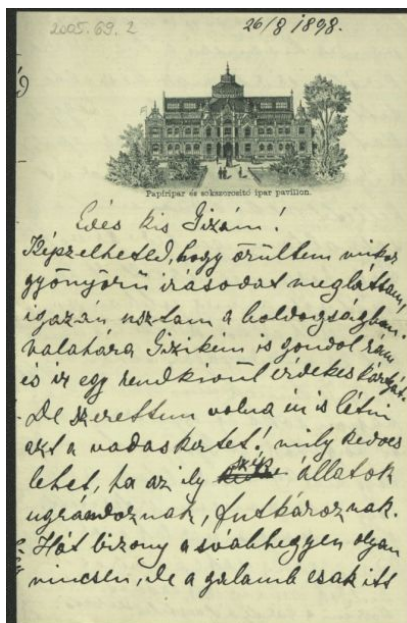 2005.69.2
26/8 1898.
Papíripar és sokszorosító ipar pavillon.
Edes kis Gizám!
Képzelheted, hogy örültem mikor
gyönyörü irásodat megláttam,
igazán usztam a boldogságban.
valahára Gizikém is gondol rám
és ir egy rendkivül érdekes kártyát.
De szerettem volna én is látni
azt a vadaskertet! mily kedves
lehet, ha az ily szép állatok
ugrándoznak, futkároznak.
Hát bizony a svábhegyen olyan
nincsen, de a galamb csak itt